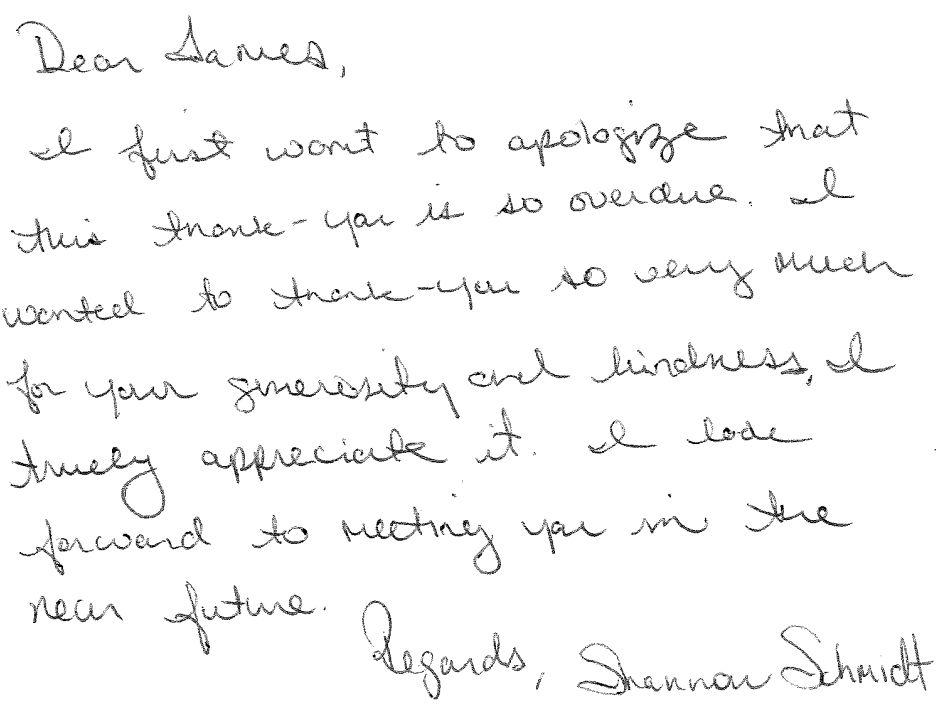 Dear James,
I first want to apologize that
this thank-you is so overdue. I
wanted to thank-you so very much
for your generosity and kindness, I
truely appreciate it. I look
forward to meeting you in the
near future.
Regards, Shannon Schmidt